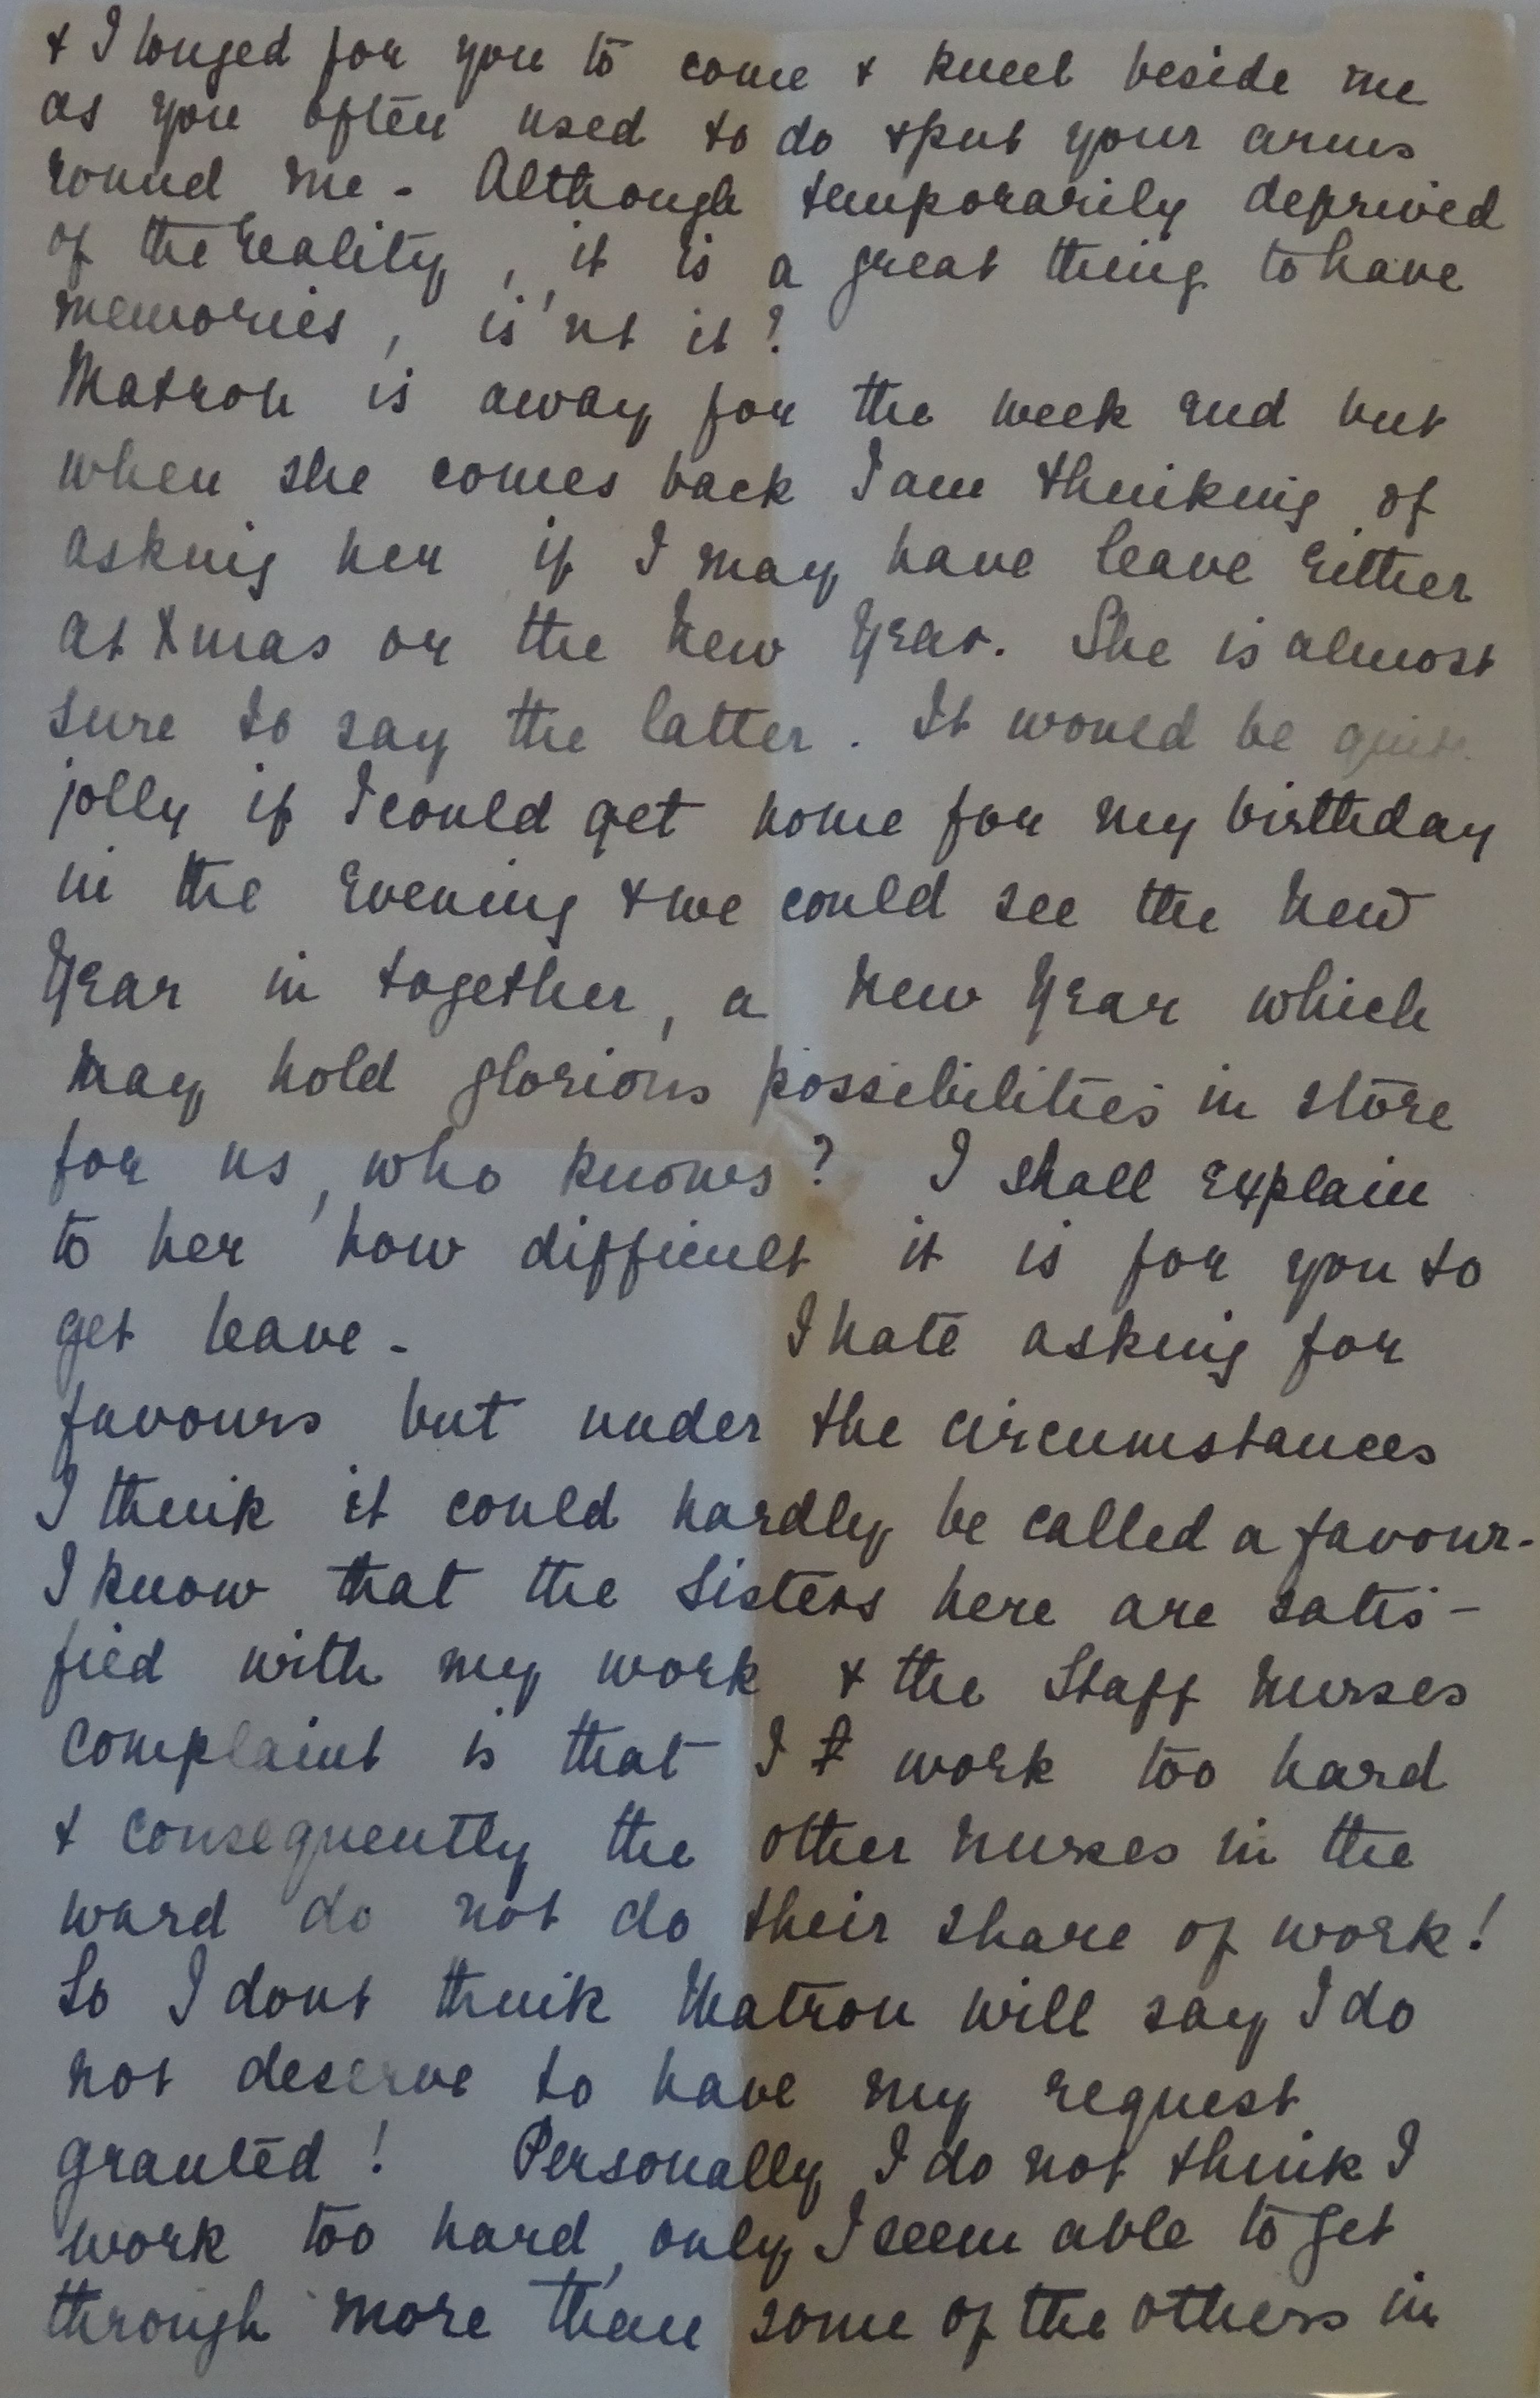 & I longed for you to come & kneel beside me
as you often used to do & put your arms
round me - Although temporarily deprived
of the reality, it is a great thing to have
memories, is'nt it?
Matron is away for the week end but
when she comes back I am thinking of
asking her if I may have leave either
at Xmas or the New Year. She is almost
sure to say the latter. It would be quite
jolly if I could get home for my birthday
in the evening & we could see the New
Year in together, a New Year which
may hold glorious possibilities in store
for us, who knows? I shall explain
to her how difficult it is for you to
get leave - I hate asking for
favours but under the circumstances
I think it could hardly be called a favour -
I know that the Sisters here are satis-
fied with my work & the Staff Nurses
complaint is that I work too hard
& consequently the other nurses in the
ward do not do their share of work!
So I dont think Matron will say I do
not deserve to have my request
granted! Personally I do not think I
work too hard, only I seem able to get
through more than some of the others in